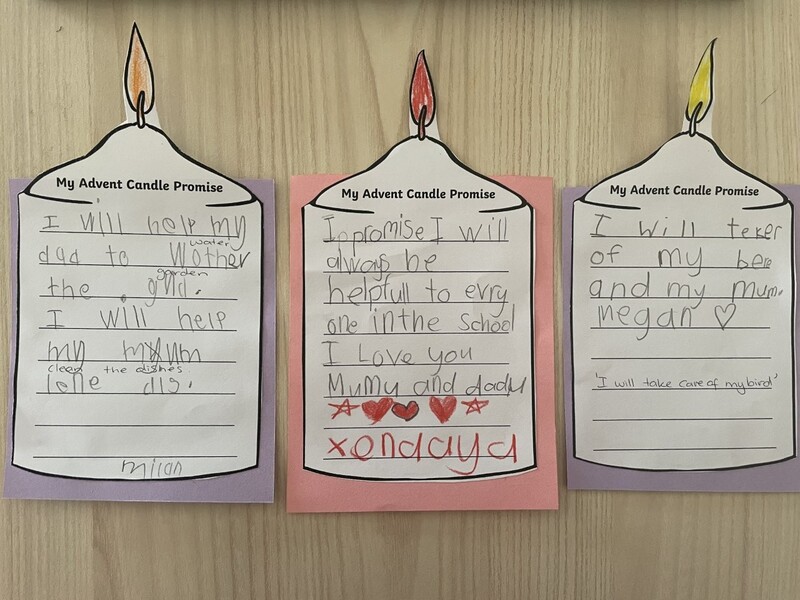 My Advent Candle Promise
I will help my
dad to wother
water
the gnd.
garden
I will help
my mum
clead the dishes
lene dis.
milan
My Advent Candle Promise
I npromise I will
always be
helpfull to evry
one in the School
I Love you
Mumy and dady
xendaya
My Advent Candle Promise
I will teker
of my bere
and my mum.
megan
'I will take care of my bird'